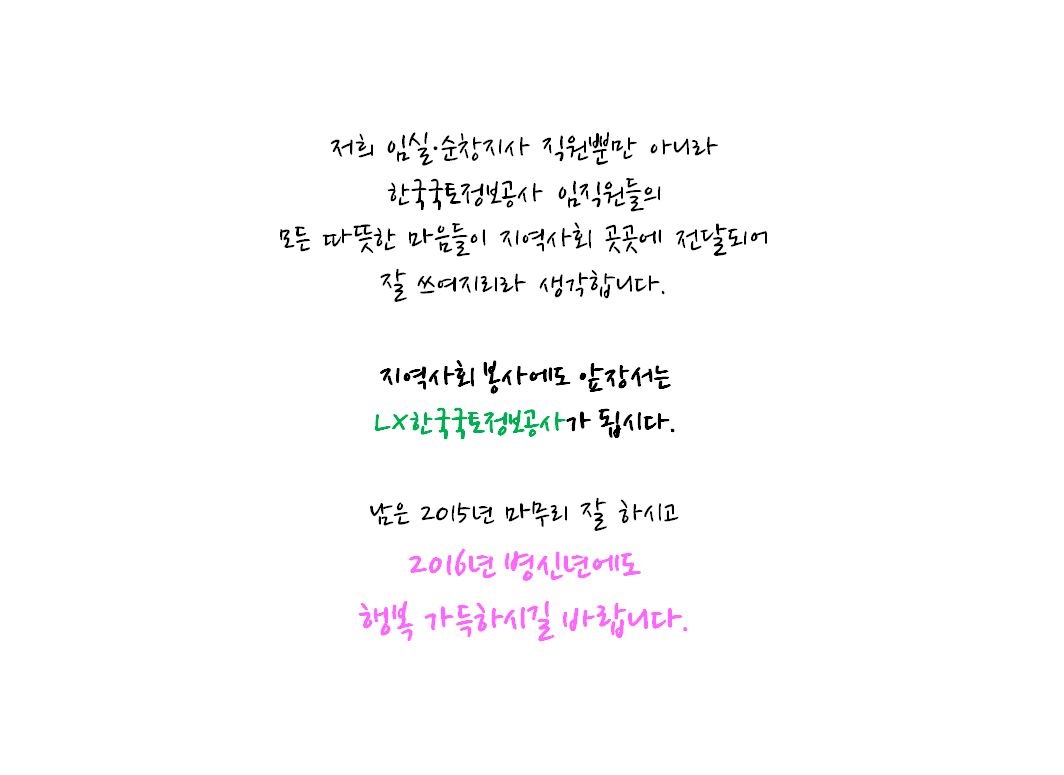 저희 임실·순창지사 직원뿐만 아니라
한국국토정보공사 임직원들의
모든 따뜻한 마음들이 지역사회 곳곳에 전달되어
잘 쓰여지리라 생각합니다.
지역사회 봉사에도 앞장서는
LX한국국토정보공사가 됩시다.
남은 2015년 마무리 잘 하시고
2016년 병신년에도
행복 가득하시길 바랍니다.